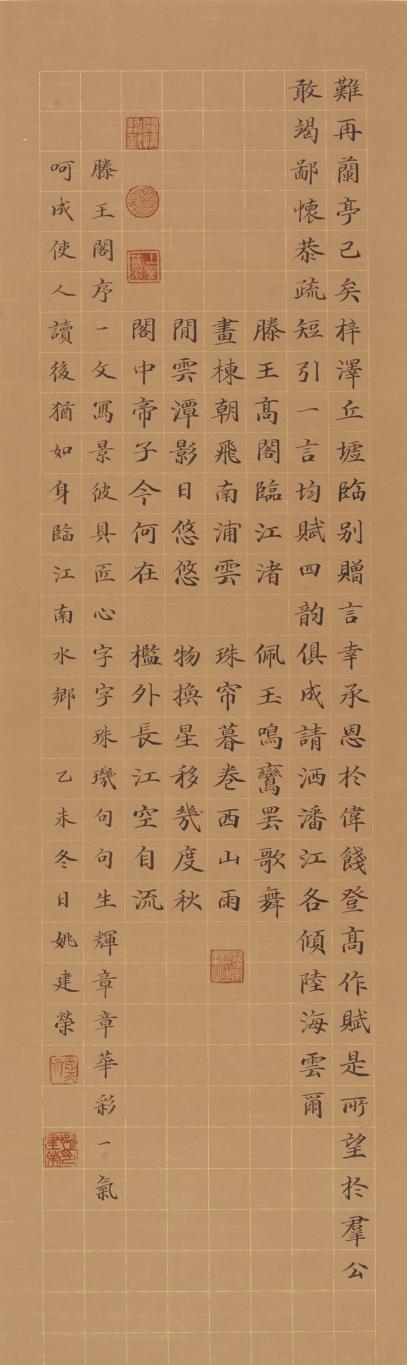 難再蘭亭已矣梓澤丘墟臨別贈言幸承恩於偉餞登高作賦是所望於羣公
敢竭鄙懷恭疏短引一言均賦四韵俱成請洒潘江各傾陸海雲爾
滕王高閣臨江渚 佩玉鳴鸞罷歌舞
畫棟朝飛南浦雲 珠帘暮卷西山雨
閒雲潭影日悠悠 物換星移幾度秋
閣中帝子今何在 檻外長江空自流
滕王閣序一文寫景彼具匠心字字珠璣句句生輝章章華彩一氣
呵成使人讀後猶如身臨江南水鄉 乙未冬日姚建榮